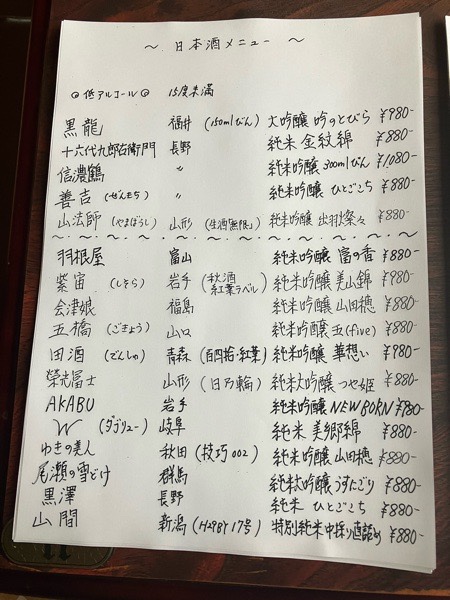 ～ 日本酒メニュー ～
◎低アルコール◎ 15度未満
黒龍 福井 (150mlびん) 大吟醸 吟のとびら ¥980-
十六代九郎右衛門 長野 純米 金紋錦 ¥880-
信濃鶴 〃 純米吟醸 300mlびん ¥1080-
善吉 (ぜんきち) 〃 純米吟醸 ひとごこち ¥880-
山法師 (やまほうし) 山形 (生酒「無限」) 純米吟醸 出羽燦々 ¥880-
羽根屋 富山 純米吟醸 富の香 ¥880-
紫宙 (しそら) 岩手 (秋酒 紅葉ラベル) 純米吟醸 美山錦 ¥980-
会津娘 福島 純米吟醸 山田穂 ¥880-
五橋 (ごきょう) 山口 純米吟醸 五(five) ¥880-
田酒 (でんしゅ) 青森 (百四拾・紅葉) 純米吟醸 華想い ¥980-
榮光冨士 山形 (日乃輪) 純米大吟醸 つや姫 ¥880-
AKABU 岩手 純米吟醸 NEWBORN ¥780-
W (ダブリュー) 岐阜 純米 美郷錦 ¥880-
ゆきの美人 秋田 (技巧002) 純米吟醸 山田穂 ¥880-
尾瀬の雪どけ 群馬 純米大吟醸 うすにごり ¥880-
黒澤 長野 純米 ひとごこち ¥880-
山間 新潟 17号) 特別純米 中採り直詰め ¥880-